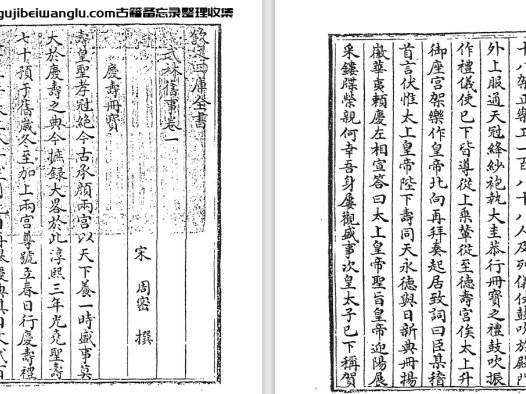 gujibeiwanglu.com古籍备忘录整理收集
欽定四庫全書
武林舊事卷一
宋 周密 撰
慶壽冊寶
壽皇聖孝冠絶今古承顔兩宫以天下養一時盛事莫
大於慶壽之典今摭録大畧於此淳熙三年光堯聖壽
七十預于舊歲冬至加上兩宫尊號立春日行慶壽禮
十八架正樂工一百八十八人及列儀仗鼓吹於殿門
外上服通天冠絳紗袍執大圭恭行冊寶之禮鼓吹振
作禮儀使已下皆導從上乗輦從至德壽宫俟太上升
御座宫架樂作皇帝北向再拜奏起居致詞曰臣某稽
首言伏惟太上皇帝陛下壽同天永德與日新典冊揚
徽華夷頼慶左相宣答曰太上皇帝聖旨皇帝迎陽展
采鏤牒榮親何幸吾身屢觀盛事次皇太子已下稱賀